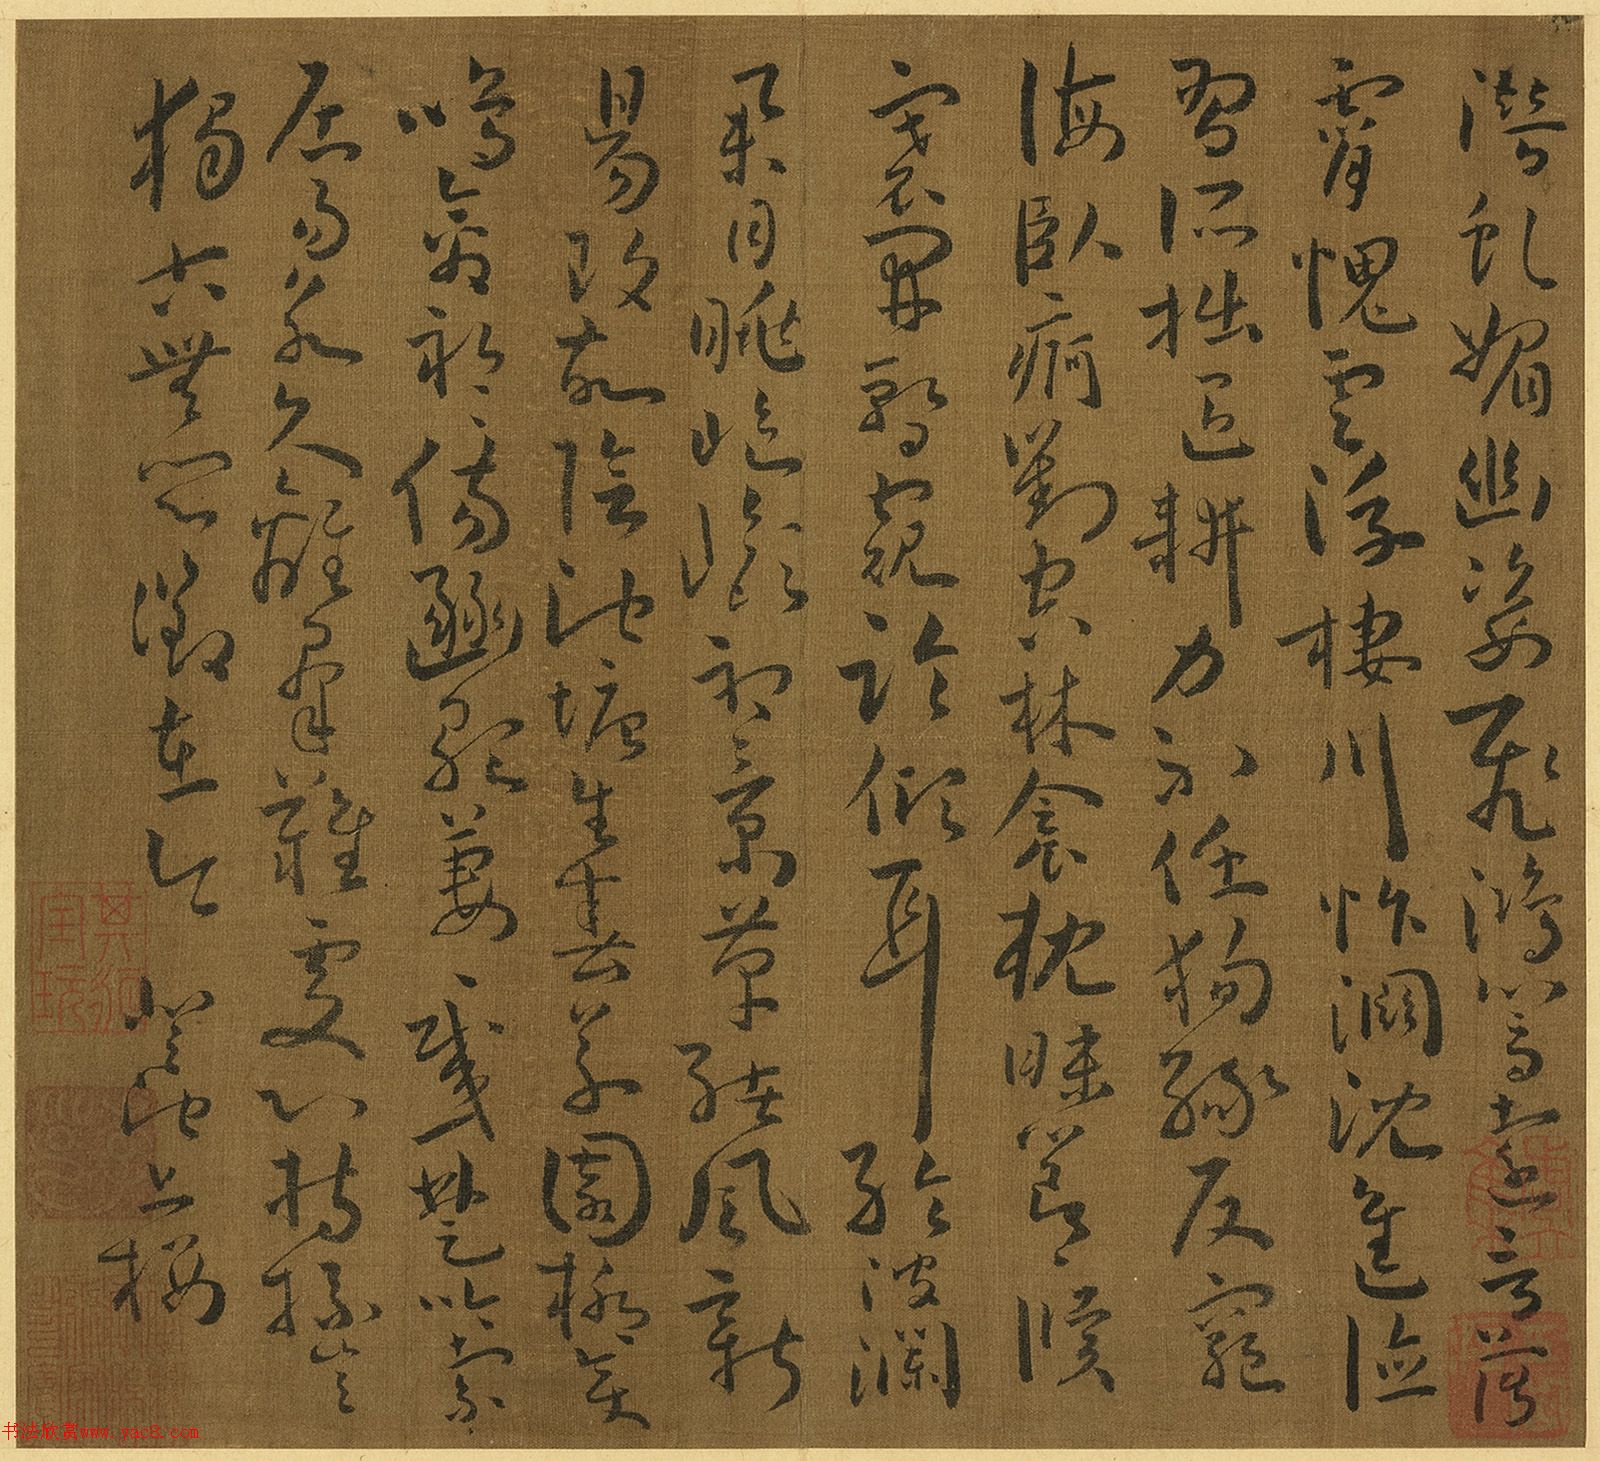 潛虬媚幽姿飛鴻響遠音薄
霄愧雲浮棲川怍淵沈進德
智所拙退耕力不任徇祿反窮
海臥痾對空林衾枕昧節候
褰開暫窺臨傾耳聆波瀾
舉目眺嶇嶔初景革緒風新
陽改故陰池塘生春草園柳變
鳴禽祁祁傷豳歌萋萋感楚吟索
居易永久離羣難處心持操豈
獨古無悶徵在今 登池上樓
书法欣赏www.yac8.com